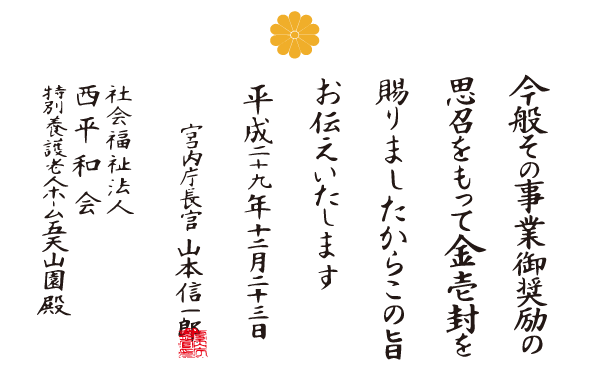 今般その事業御奨励の
思召をもって金壱封を
賜りましたからこの旨
お伝えいたします
平成二十九年十二月二十三日
宮内庁長官 山本信一郎
社会福祉法人
西平和会
特別養護老人ホーム五天山園 殿